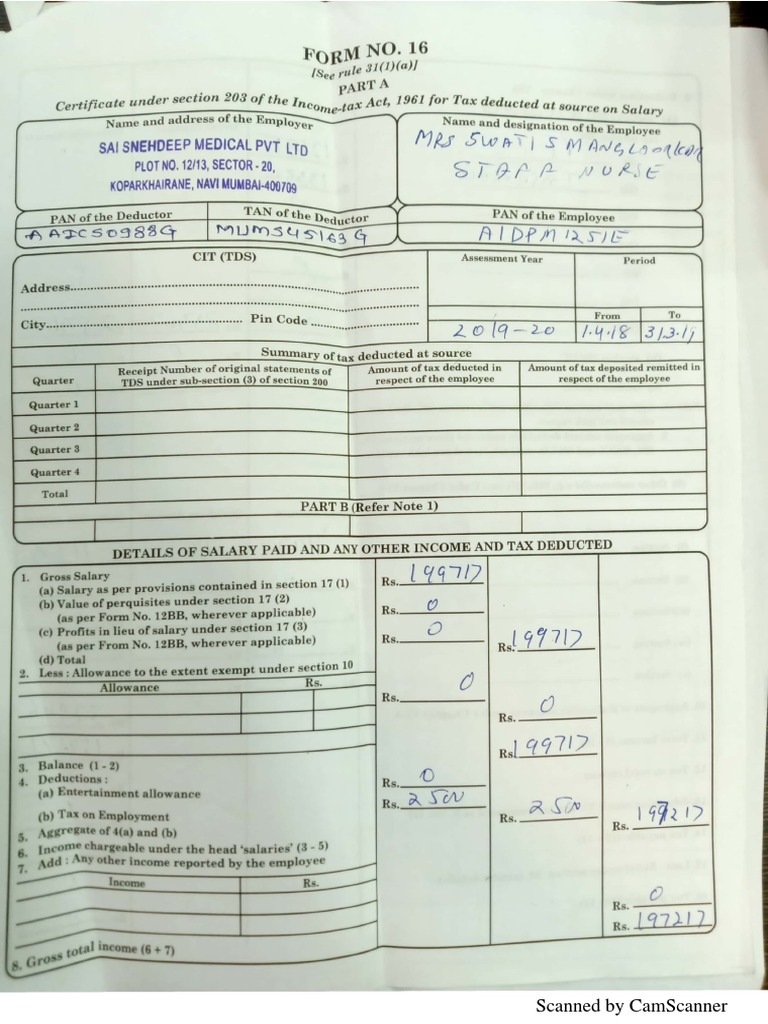 FORM NO. 16
[See rule 31(1)(a)]
PART A
Certificate under section 203 of the Income-tax Act, 1961 for Tax deducted at source on Salary
Name and address of the Employer
SAI SNEHDEEP MEDICAL PVT LTD
PLOT NO. 12/13, SECTOR - 20,
KOPARKHAIRANE, NAVI MUMBAI-400709
Name and designation of the Employee
MRS SWATI S
STAFF NURSE
PAN of the Deductor
AAICS0988G
TAN of the Deductor
MUMS45163G
PAN of the Employee
AIDPM1251E
CIT (TDS)
Address
City Pin Code
Assessment Year
2019-20
Period
From To
1.4.18 31.3.19
Summary of tax deducted at source
Quarter Receipt Number of original statements of TDS under sub-section (3) of section 200 Amount of tax deducted in respect of the employee Amount of tax deposited remitted in respect of the employee
Quarter 1
Quarter 2
Quarter 3
Quarter 4
Total
PART B (Refer Note 1)
DETAILS OF SALARY PAID AND ANY OTHER INCOME AND TAX DEDUCTED
1. Gross Salary
(a) Salary as per provisions contained in section 17 (1) Rs. 199717
(b) Value of perquisites under section 17 (2)
(as per Form No. 12BB, wherever applicable) Rs. 0
(c) Profits in lieu of salary under section 17 (3)
(as per From No. 12BB, wherever applicable) Rs. 0
(d) Total Rs. 199717
2. Less : Allowance to the extent exempt under section 10
Allowance Rs.
Rs. 0
Rs. 0
3. Balance (1 - 2) Rs 199717
4. Deductions :
(a) Entertainment allowance Rs. 0
(b) Tax on Employment Rs. 2500
5. Aggregate of 4(a) and (b) Rs. 2500
6. Income chargeable under the head 'salaries' (3 - 5) Rs. 197217
7. Add : Any other income reported by the employee
Income Rs.
Rs. 0
8. Gross total income (6 + 7) Rs. 197217
Scanned by CamScanner